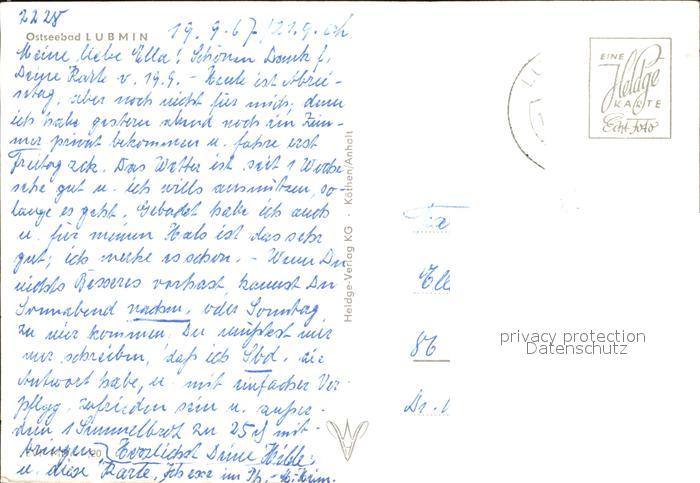 2228
Ostseebad LUBMIN
19.9.67/21.9.
Meine liebe Ella! Schönen Dank f.
Deine Karte v. 19.9. - Heute ist Abrei-
setag, aber noch nicht für mich, denn
ich habe gestern abend noch ein Zim-
mer privat bekommen u. fahre erst
Freitag zck. Das Wetter ist seit 1 Woche
sehr gut u. ich wills ausnützen, so-
lange es geht. Gebadet habe ich auch
u. für meinen Hals ist das sehr
gut; ich merke es schon. - Wenn Du
nichts Besseres vorhast, kannst Du
Sonnabend nachm. oder Sonntag
zu mir kommen. Du müßtest mir
nur schreiben, daß ich Sbd. die
Antwort habe, u. mit einfacher Ver-
pflgg. zufrieden sein u. außer-
dem 1 Simmelbrot zu 25 mit-
bringen. Herzlichst Deine Hilde
u. diese Karte, im
Heldge-Verlag KG · Köthen/Anhalt
EINE
Heldge
KARTE
Echt Foto
Ell
86
Dr.
privacy protection
Datenschutz